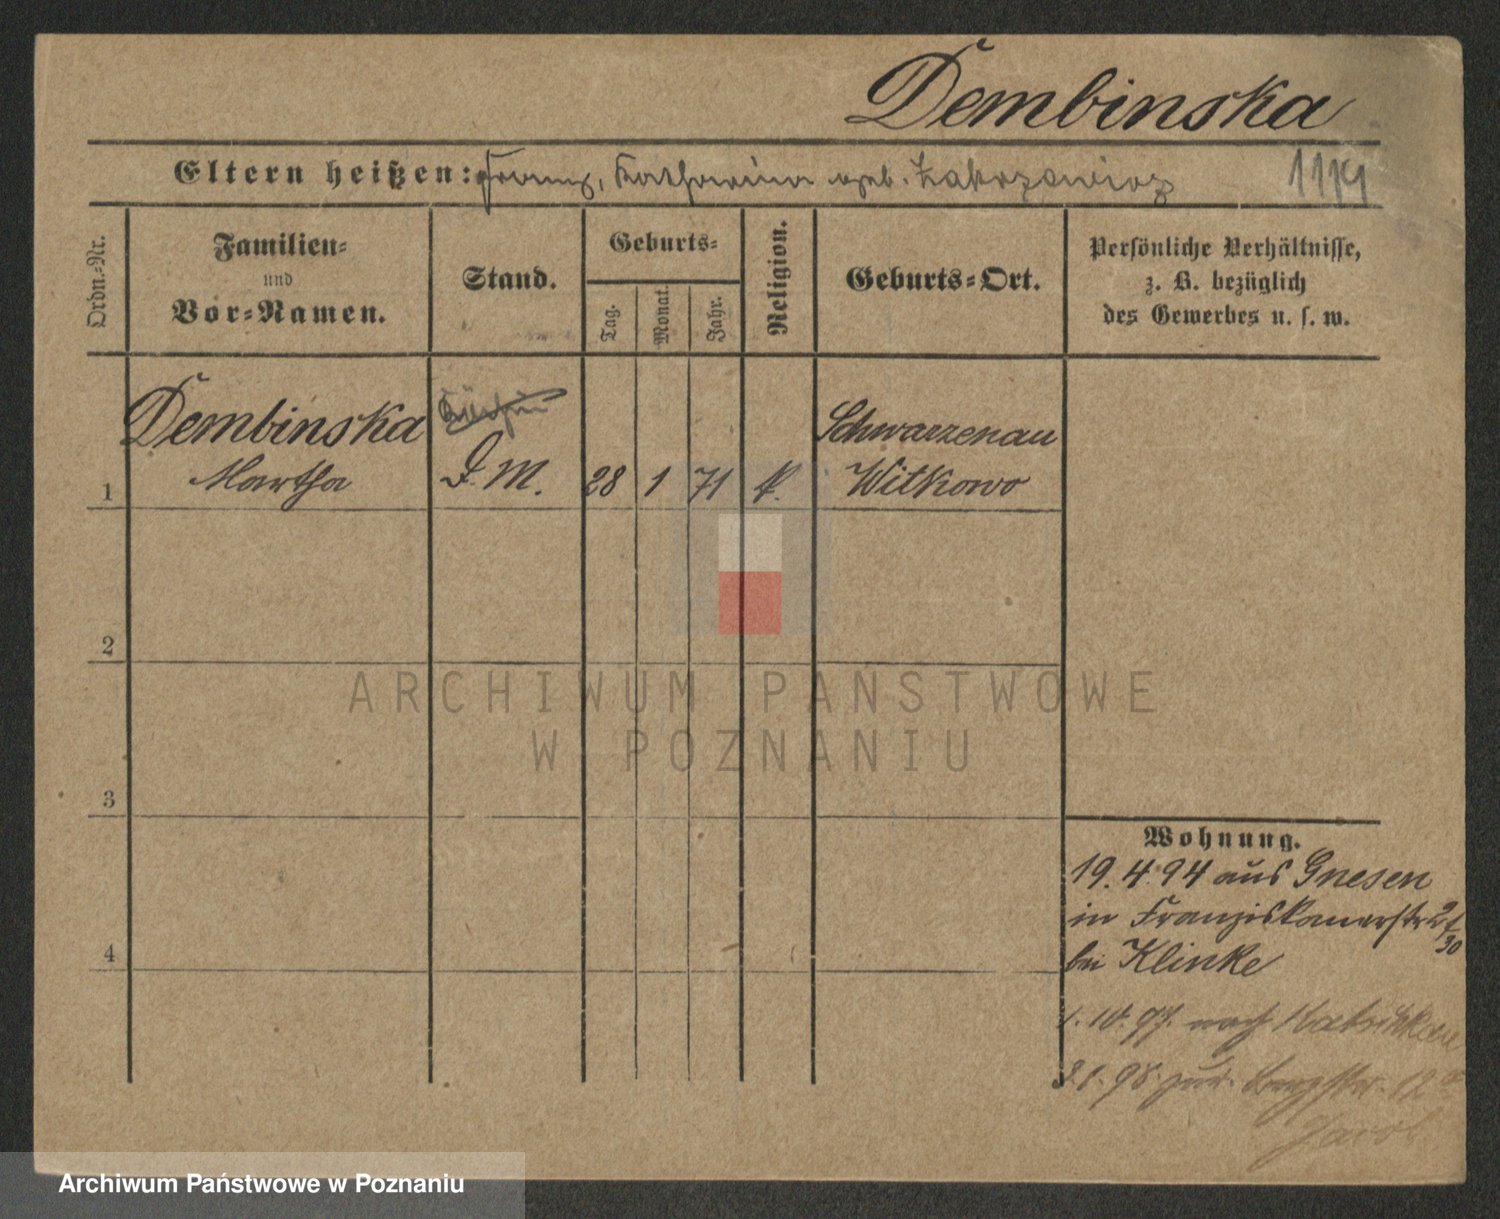 Dembinska
Eltern heißen: Franz, Katharina geb. Zakrzewicz
1119
Ordn.-Nr.
Familien-
und
Vor-Namen.
Stand.
Geburts-
Tag.
Monat.
Jahr.
Religion.
Geburts-Ort.
Persönliche Verhältnisse,
z. B. bezüglich
des Gewerbes u. s. w.
Dembinska
Martha
1
D. M.
28
1
71
k.
Schwarzenau
Witkowo
2
3
4
Wohnung.
19.4.94 aus Gnesen
in Franziskanerstr 2
bei Klinke
1.10.97. nach
3.1.98. zur. Bergstr. 12
ARCHIWUM PAŃSTWOWE
W POZNANIU
Archiwum Państwowe w Poznaniu